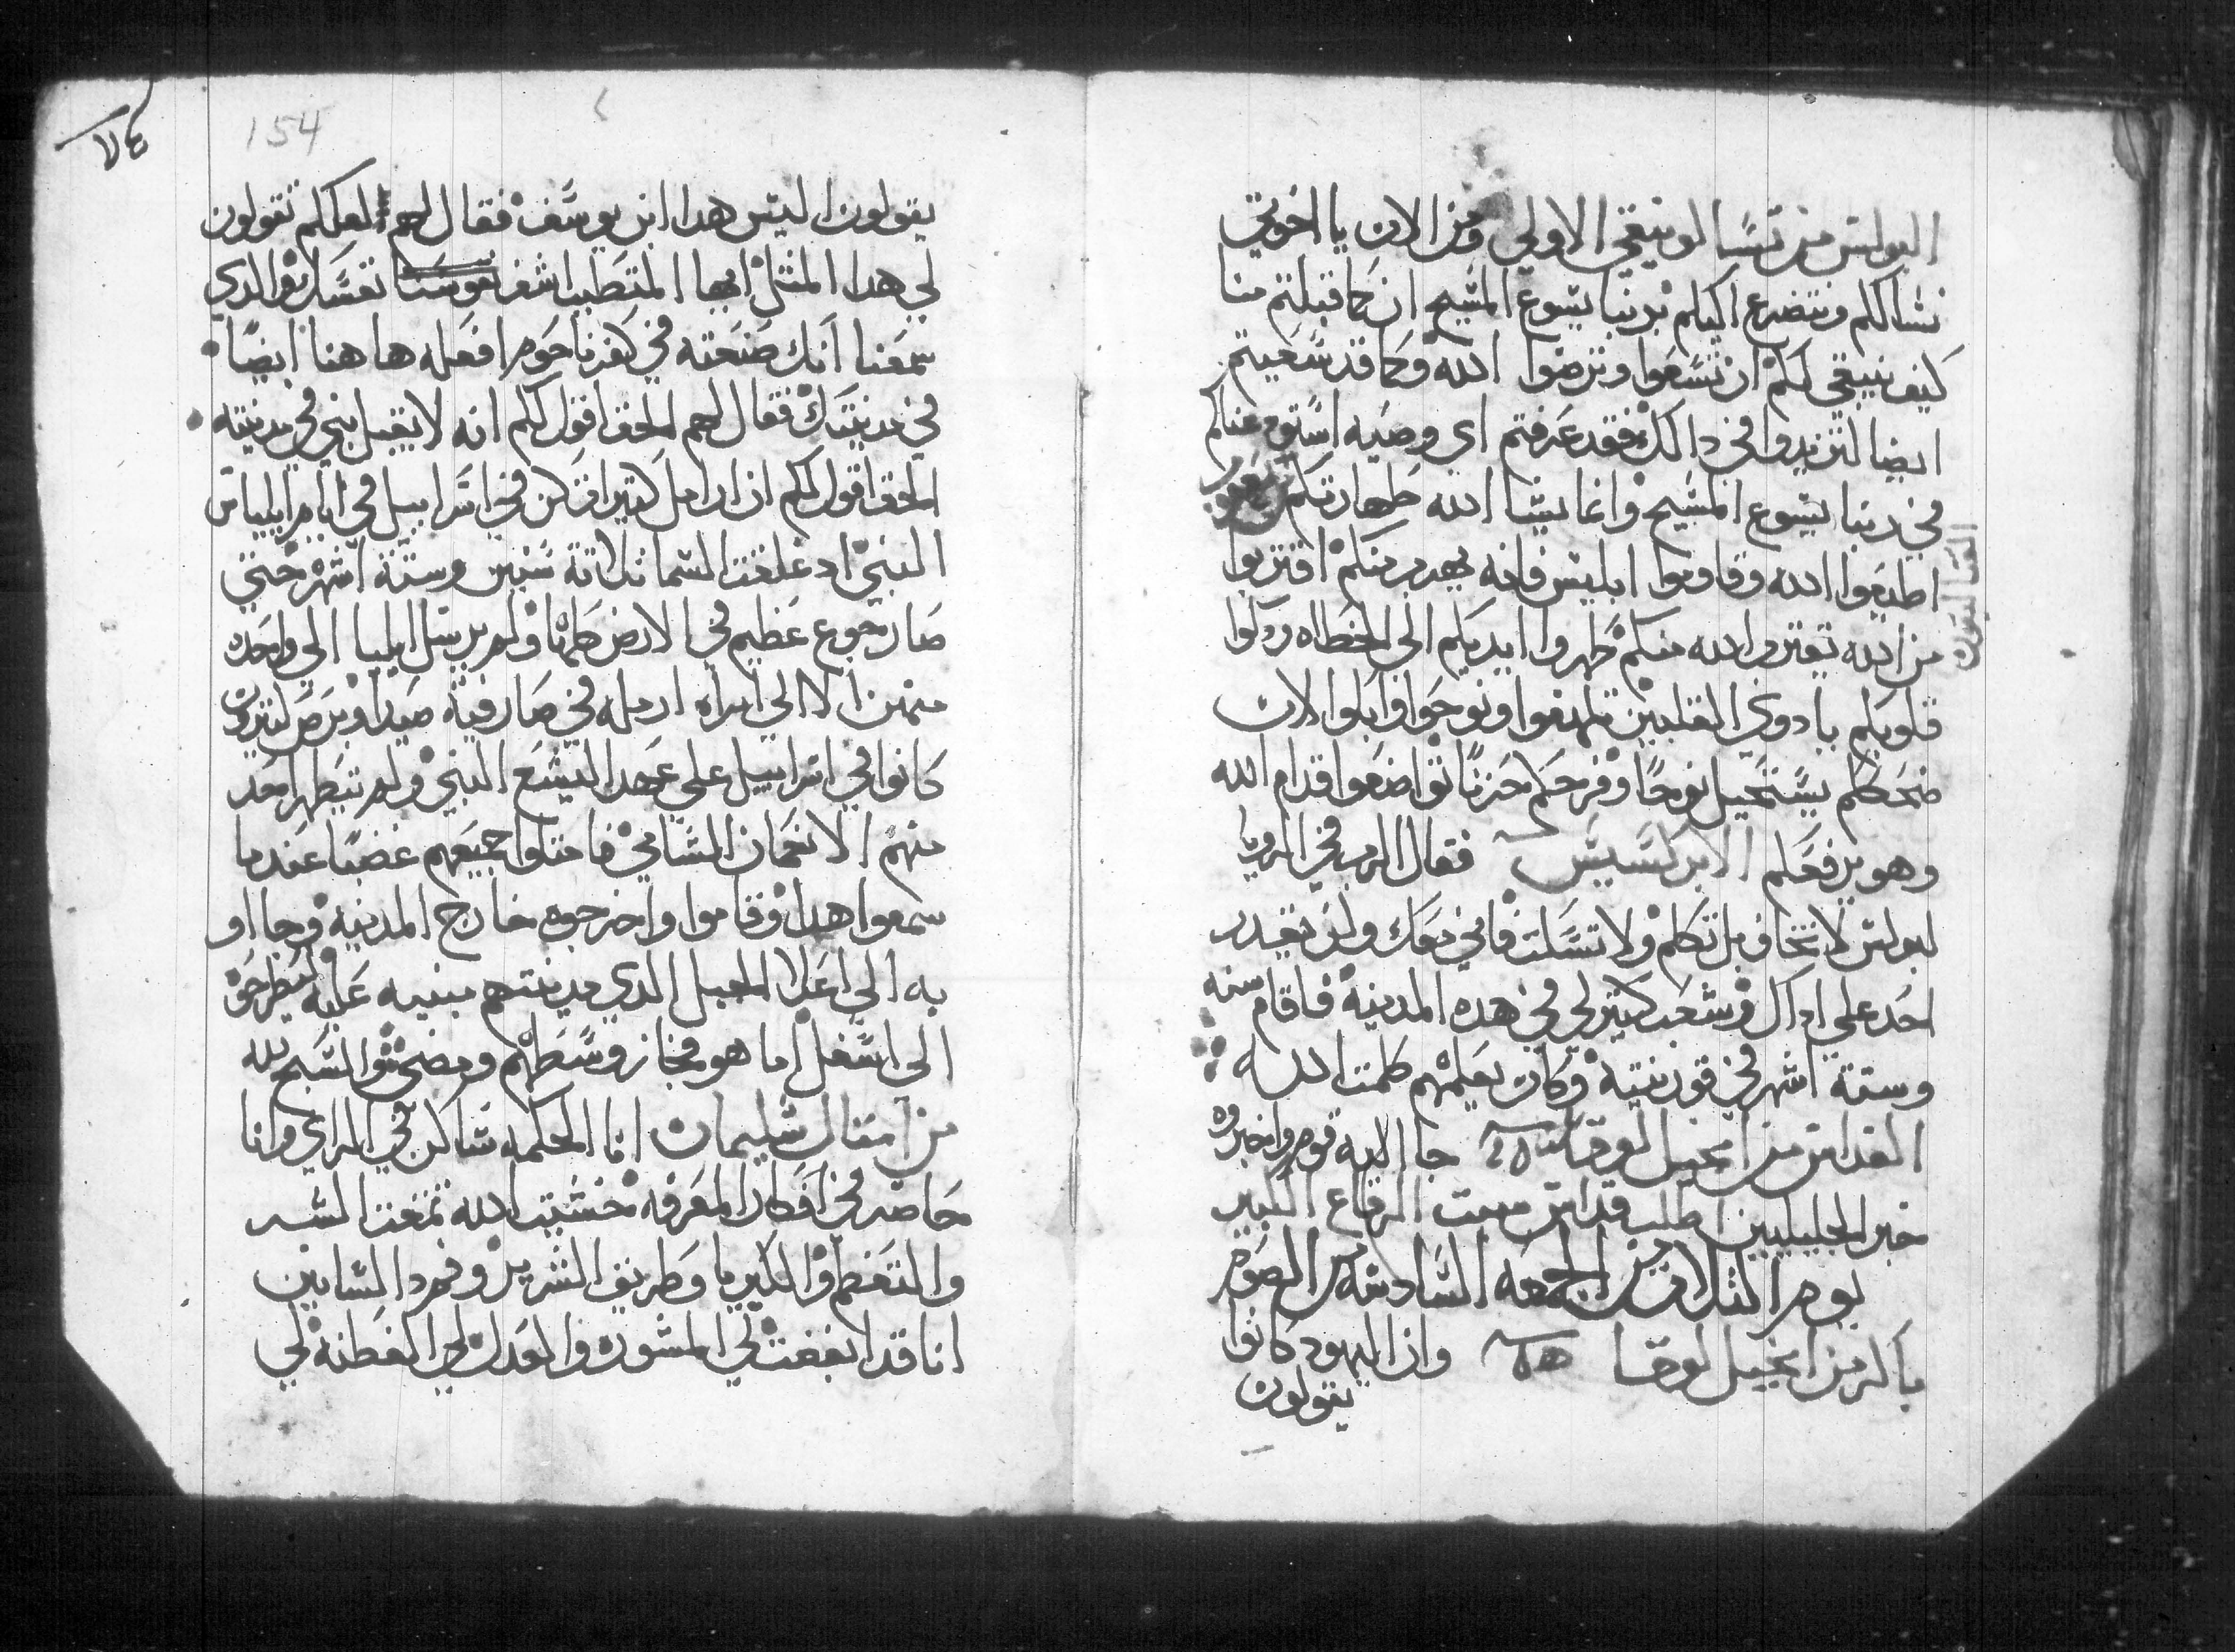 البولس من تسالونيقي الاولي ومن الان يا اخوتي
نسالكم ونتضرع اليكم بربنا يسوع المسيح ان كما قبلتم منا
كيف ينبغي لكم ان تسعوا وترضوا الله وكما قد سعيتم
ايضا لتزيدوا في دالك فقد عرفتم اي وصيه استودعناكم
في ربنا يسوع المسيح وانما يشا الله طهارتكم يعقوب
القتاليقون
اطيعوا الله وقاوموا ابليس فانه يهرب منكم اقتربوا
من الله يقترب الله منكم طهروا ايديكم الى الخطاه وزكوا
قلوبكم يا دوي القلبين تلهفوا ونوحوا وابكوا لان
ضحككم يستحيل نوحا وفرحكم حزنا تواضعوا قدام الله
وهو يرفعكم الابركسيس فقال الرب في الرويا
لبولس لا تخاف بل تكلم ولا تسكت فاني معك ولن يقدر
احد على اداك وشعب كتير لي في هده المدينة فاقام سنه
وستة اشهر في قورنتية وكان يعلمهم كلمت الله
القداس من انجيل لوقا جا اليه قوم واخبروه
خبر الجليليين اطلب قداس سبت الرفاع الكبير
يوم الثلاث من الجمعه السادسه من الصوم
باكر من انجيل لوقا وان اليهود كانوا
يقولون
٧٤
154
يقولون اليس هدا ابن يوسف فقال لهم لعلكم تقولون
لي هدا المثل ايها المتطبب اشف نفسك والدي
سمعنا انك صنعته في كفرناحوم افعله هاهنا ايضا
في مدينتك فقال لهم الحق اقول لكم انه لا يقبل نبي في مدينته
الحق اقول لكم ان ارامل كتير كن في اسراييل في ايام ايلياس
النبي اد غلقت السما تلاتة سنين وستة اشهر حتي
صار جوع عظيم في الارض كلها ولم يرسل ايليا الي واحده
منهن الا الي امراه ارمله في صارفية صيدا وبرص كتيرون
كانوا في اسراييل علي عهد اليشع النبي ولم يتطهر احد
منهم الا نعمان الشامي فامتلوا جميعهم غضبا عندما
سمعوا هدا وقاموا واخرجوه خارج المدينة وجااو
به الي اعلا الجبل الدي مدينتهم مبنيه عليه ليطرحوه
الي اسفل اما هو فجاز وسطهم ومضى والسبح لله
من امتال سليمان انا الحكمه ساكن في الراي وانا
حاضر في افكار المعرفه خشيت الله تمقت الشر
والتعظم والكبريا وطريق الشرير
انا قد ابغضت لي المشوره والعدل لي الفطنة لي